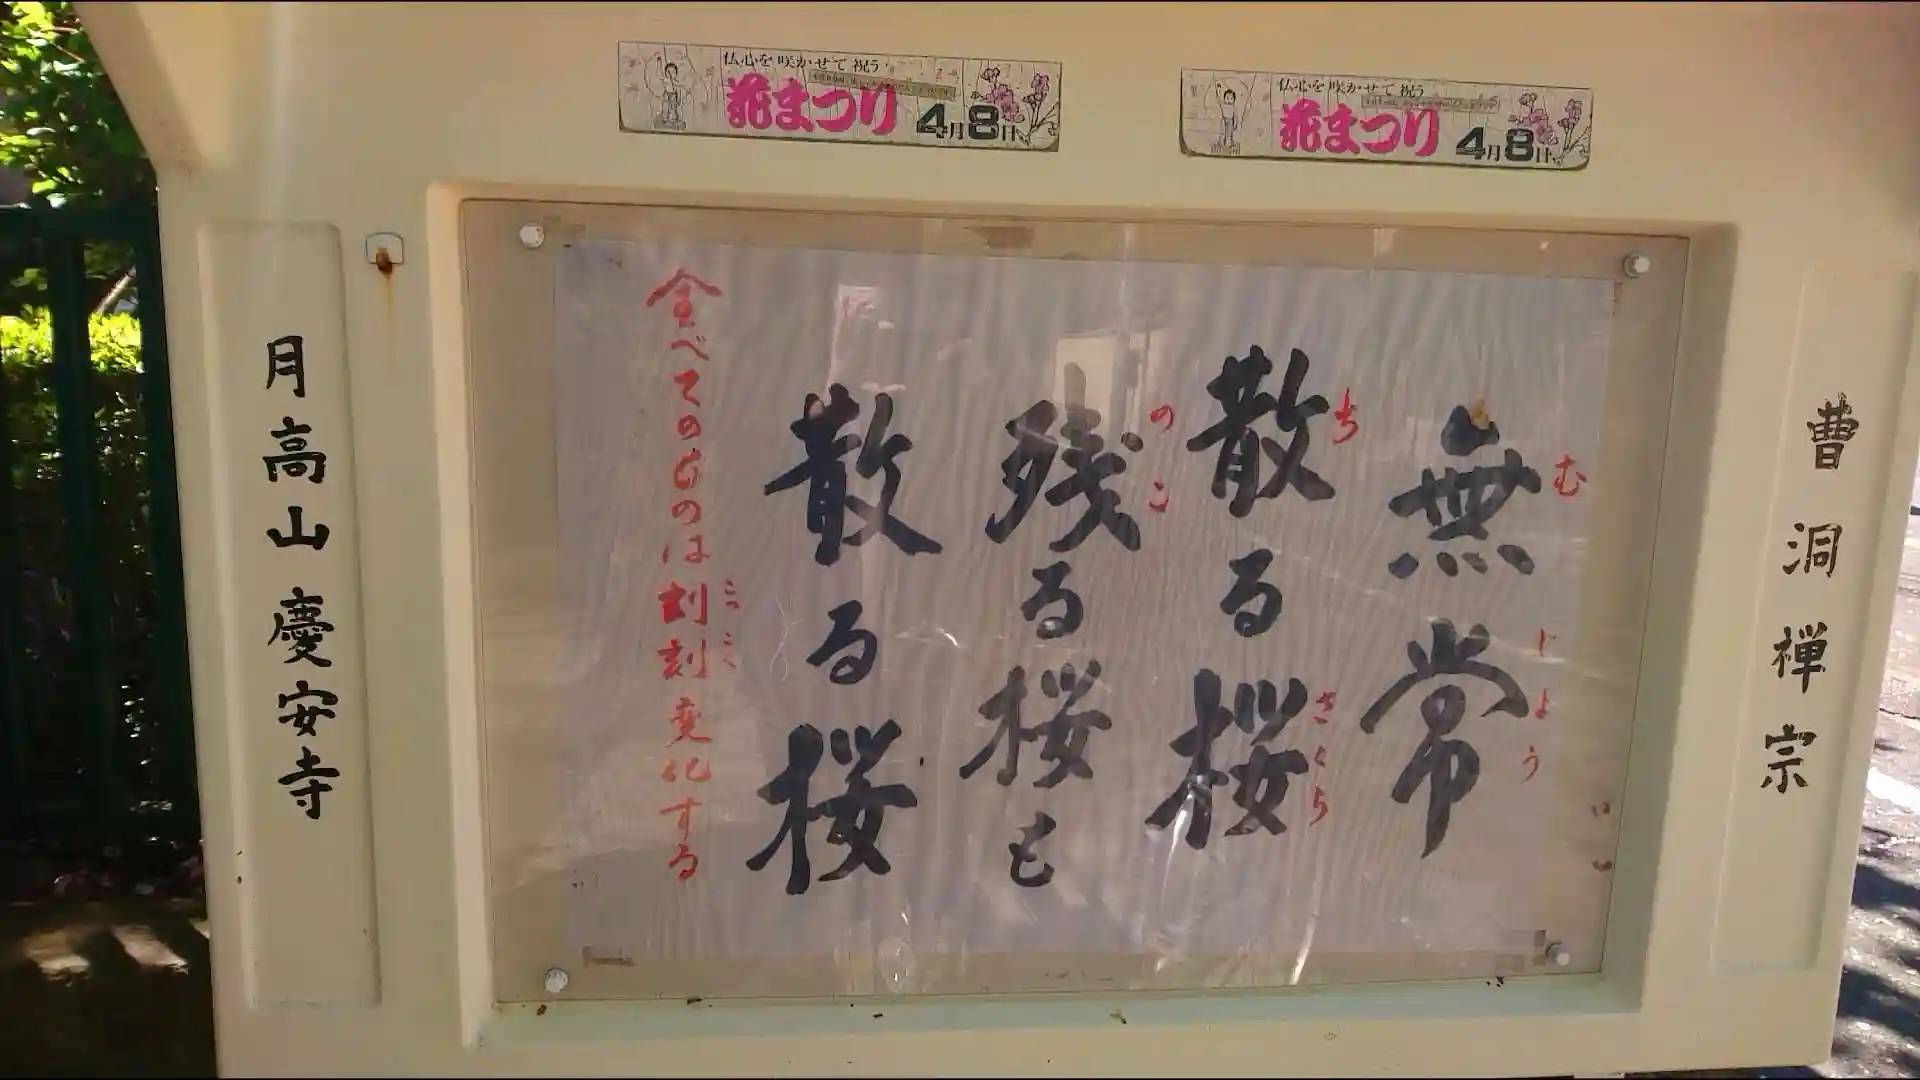 仏心を咲かせて祝う
花まつり
4月8日
仏心を咲かせて祝う
花まつり
4月8日
曹洞禅宗
無常
むじょう
散る桜
ち
さくら
残る桜も
のこ
散る桜
全べてのものは刻刻変化する
こっこく
月高山慶安寺